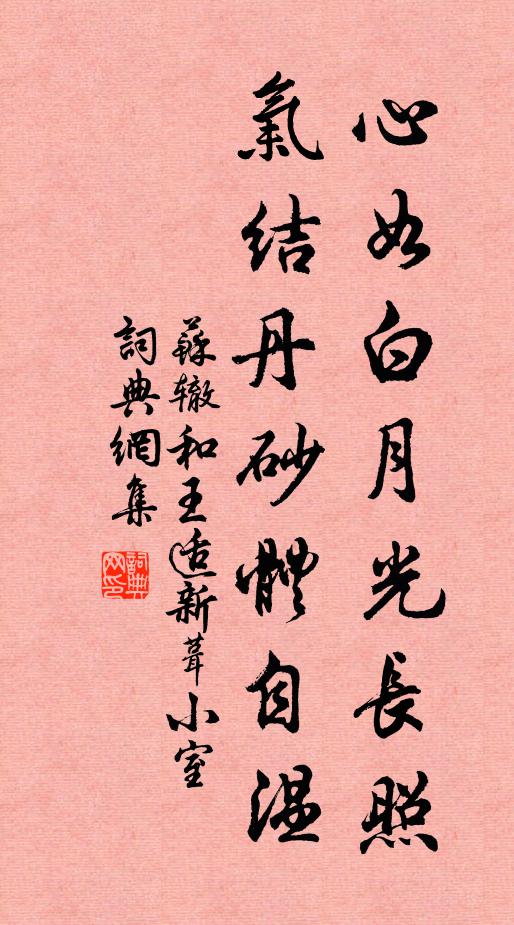 心如白月光長照
氣結丹砂體自温
蘇辙和王适新葺小室
詞典網集
詞典網印